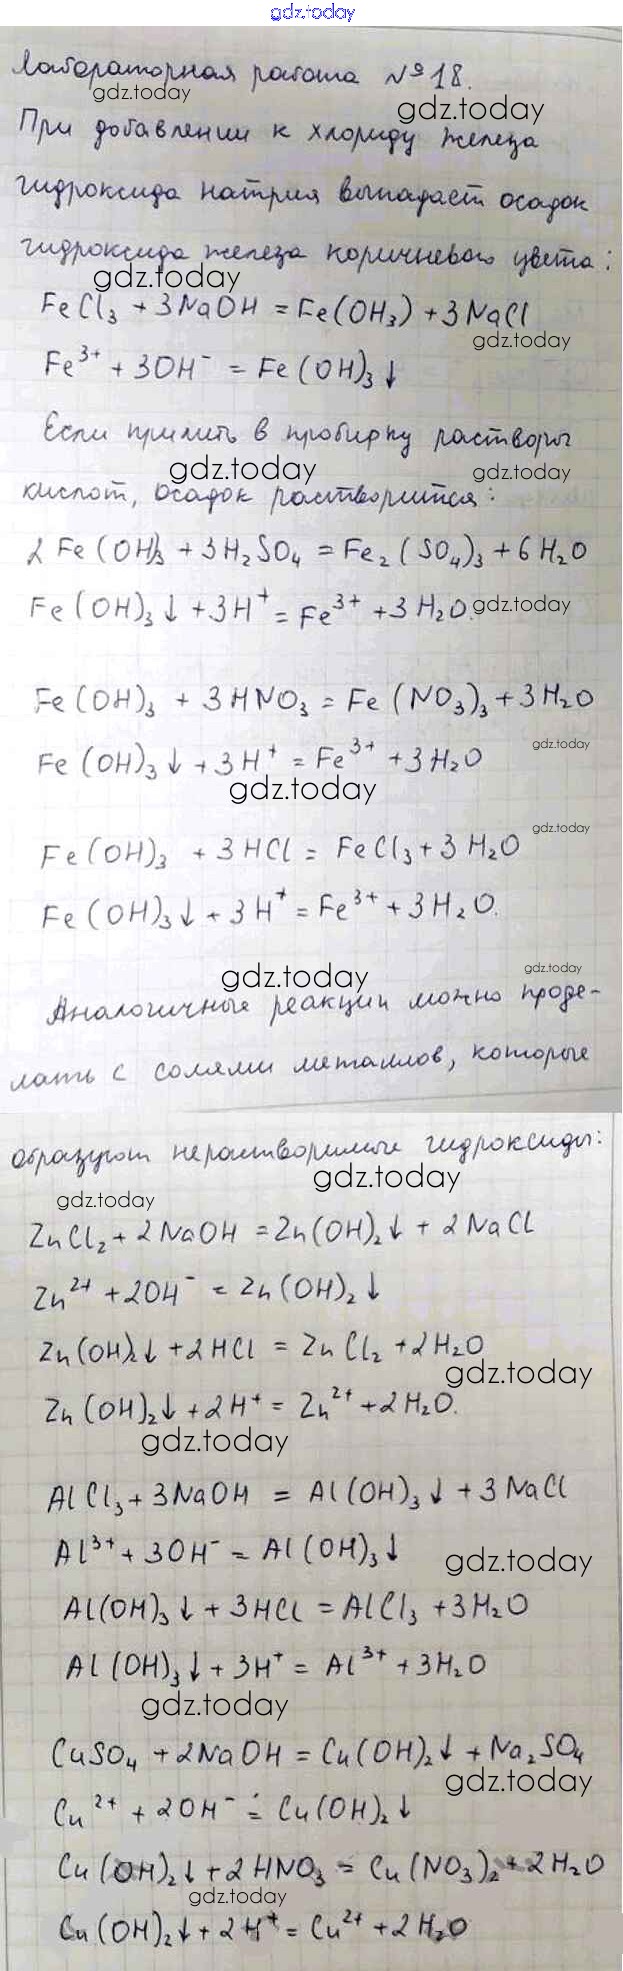 gdz.today
Лабораторная работа №18.
gdz.today
gdz.today
При добавлении к хлориду железа
гидроксида натрия выпадает осадок
гидроксида железа коричневого цвета:
gdz.today
FeCl₃ + 3NaOH = Fe(OH₃) + 3NaCl
gdz.today
Fe³⁺ + 3OH⁻ = Fe(OH)₃↓
Если прилить в пробирку растворы
gdz.today
gdz.today
кислот, осадок растворится:
2Fe(OH)₃ + 3H₂SO₄ = Fe₂(SO₄)₃ + 6H₂O
Fe(OH)₃↓ + 3H⁺ = Fe³⁺ + 3H₂O.
gdz.today
Fe(OH)₃ + 3HNO₃ = Fe(NO₃)₃ + 3H₂O
gdz.today
Fe(OH)₃↓ + 3H⁺ = Fe³⁺ + 3H₂O
gdz.today
gdz.today
Fe(OH)₃ + 3HCl = FeCl₃ + 3H₂O
Fe(OH)₃↓ + 3H⁺ = Fe³⁺ + 3H₂O.
gdz.today
gdz.today
Аналогичные реакции можно проде-
лать с солями металлов, которые
образуют нерастворимые гидроксиды:
gdz.today
gdz.today
ZnCl₂ + 2NaOH = Zn(OH)₂↓ + 2NaCl
Zn²⁺ + 2OH⁻ = Zn(OH)₂↓
Zn(OH)₂↓ + 2HCl = ZnCl₂ + 2H₂O
gdz.today
Zn(OH)₂↓ + 2H⁺ = Zn²⁺ + 2H₂O.
gdz.today
AlCl₃ + 3NaOH = Al(OH)₃↓ + 3NaCl
Al³⁺ + 3OH⁻ = Al(OH)₃↓
gdz.today
Al(OH)₃↓ + 3HCl = AlCl₃ + 3H₂O
Al(OH)₃↓ + 3H⁺ = Al³⁺ + 3H₂O
gdz.today
CuSO₄ + 2NaOH = Cu(OH)₂↓ + Na₂SO₄
gdz.today
Cu²⁺ + 2OH⁻ = Cu(OH)₂↓
Cu(OH)₂↓ + 2HNO₃ = Cu(NO₃)₂ + 2H₂O
gdz.today
Cu(OH)₂↓ + 2H⁺ = Cu²⁺ + 2H₂O